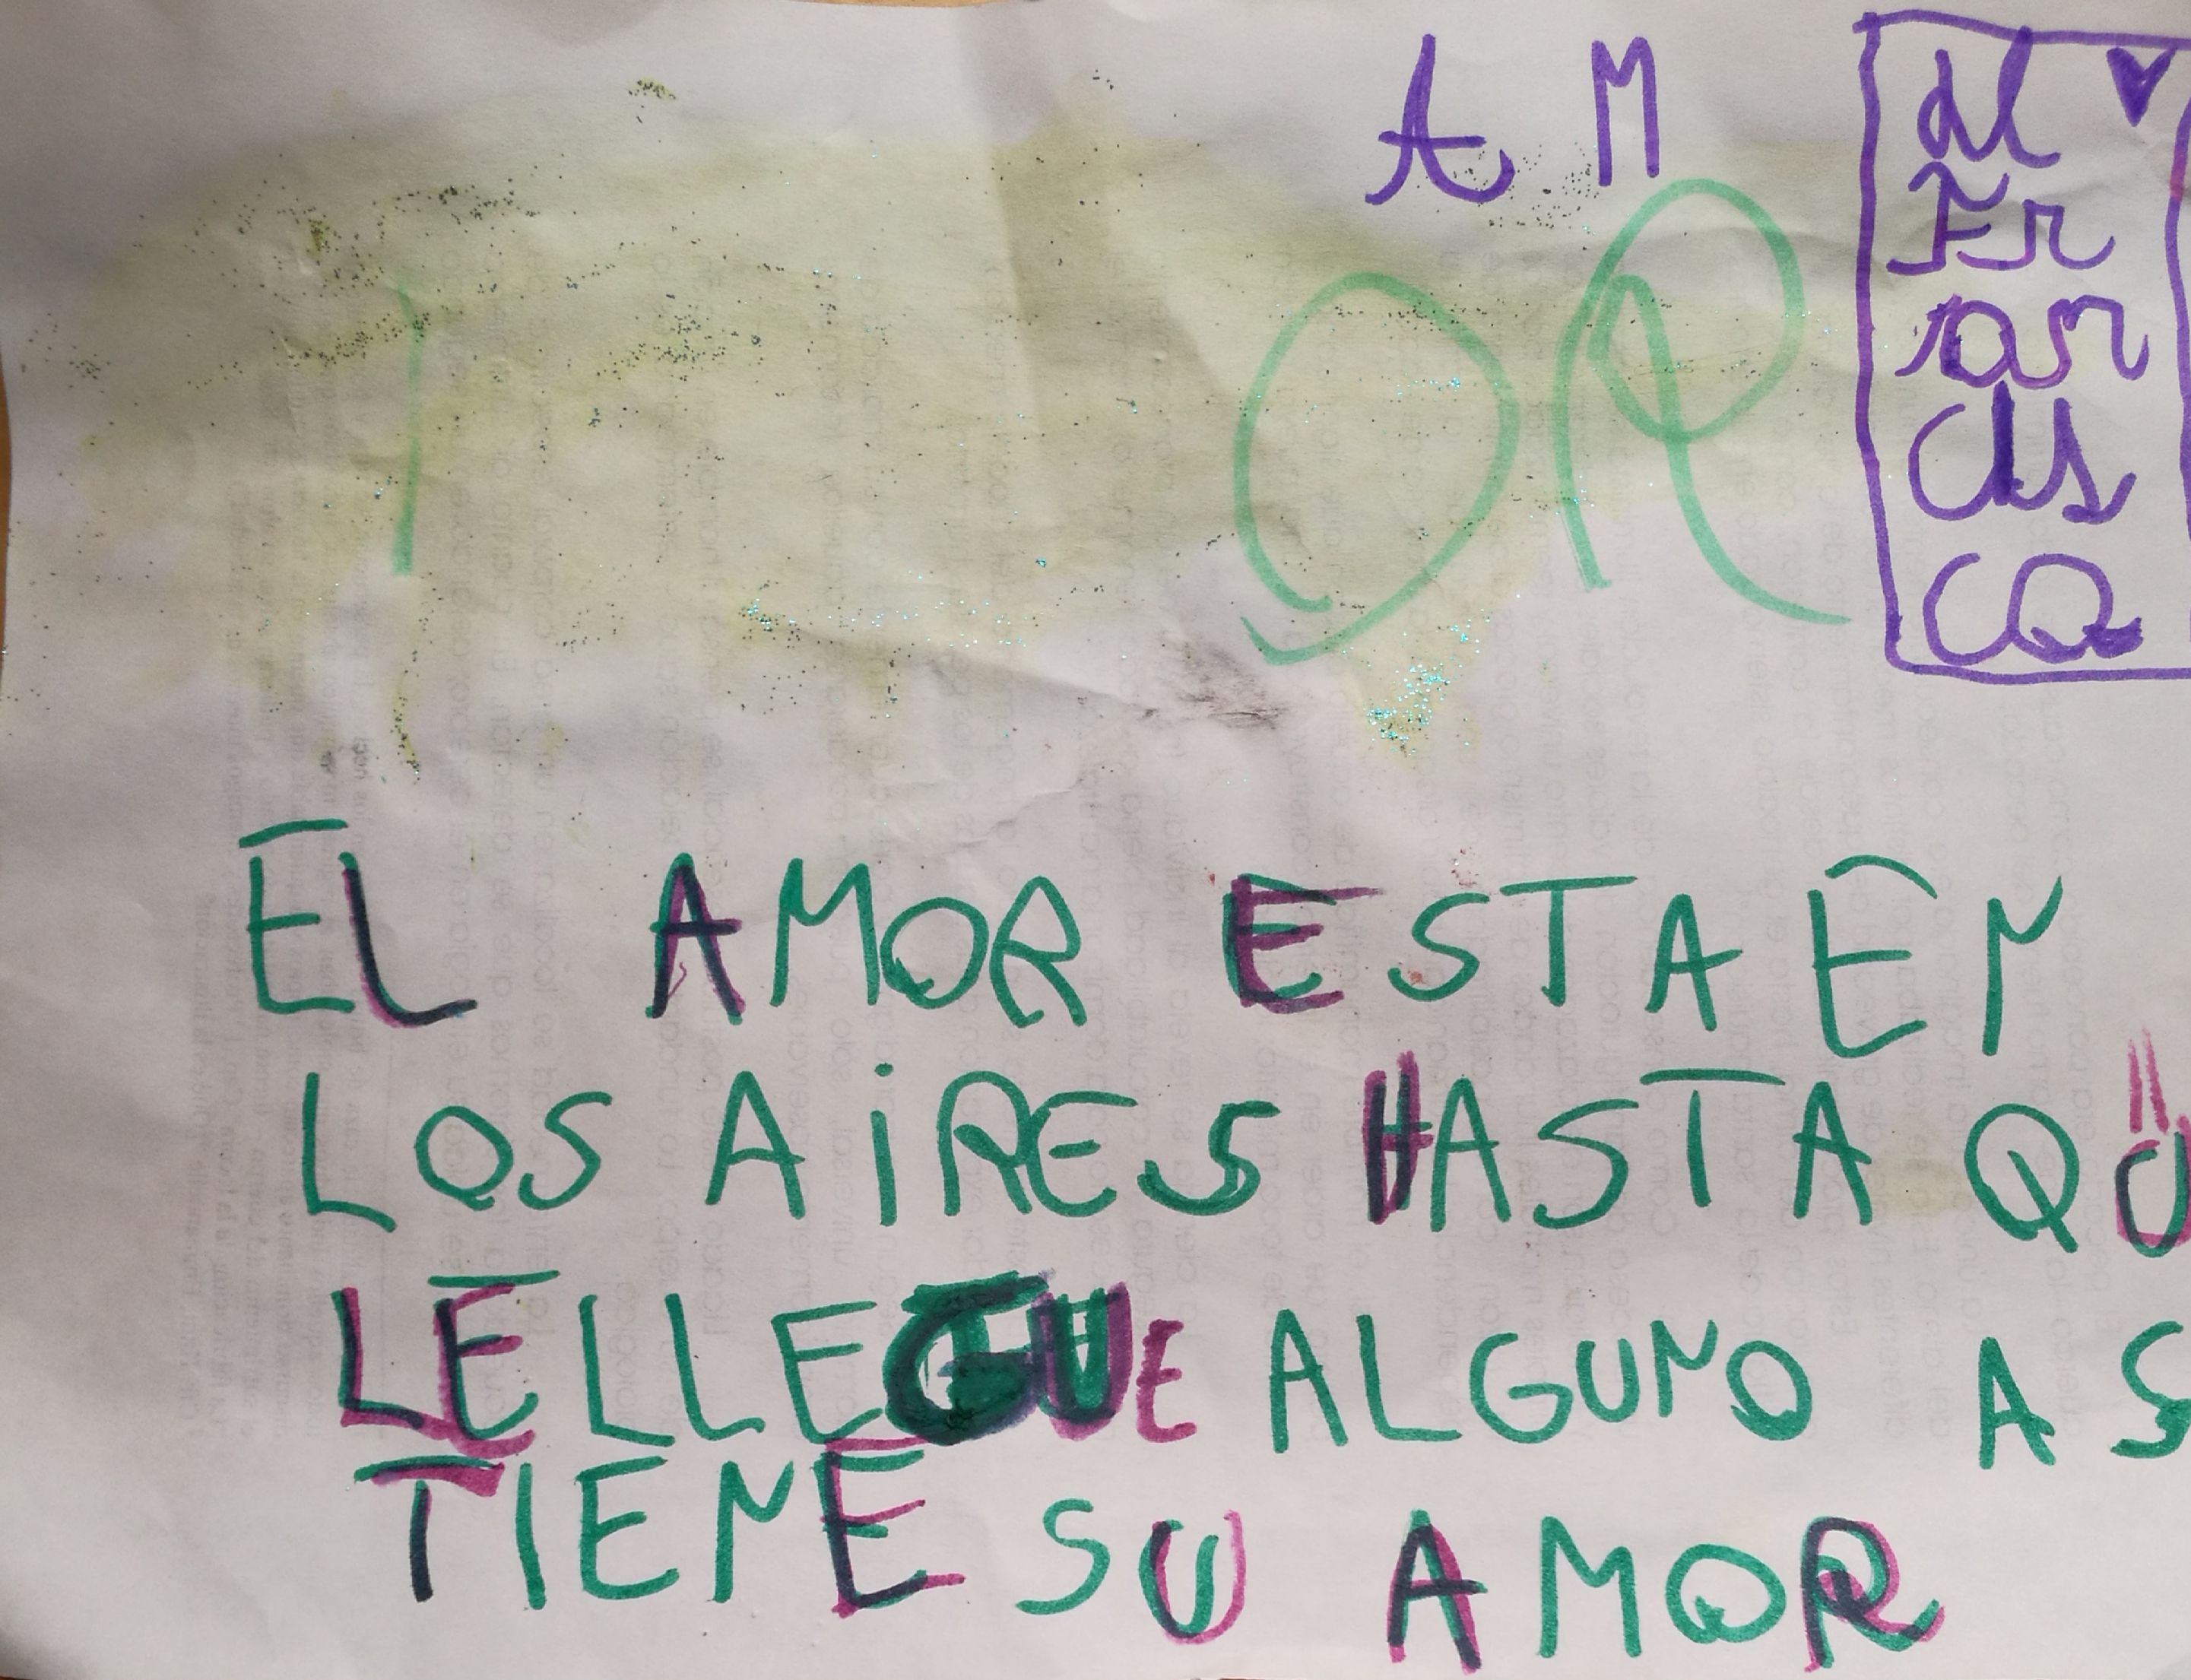 A M
OR
al
Fr
an
cis
co
EL AMOR ESTA EN
LOS AIRES HASTA QU
LE LLEGUE ALGUNO AS
TIENE SU AMOR